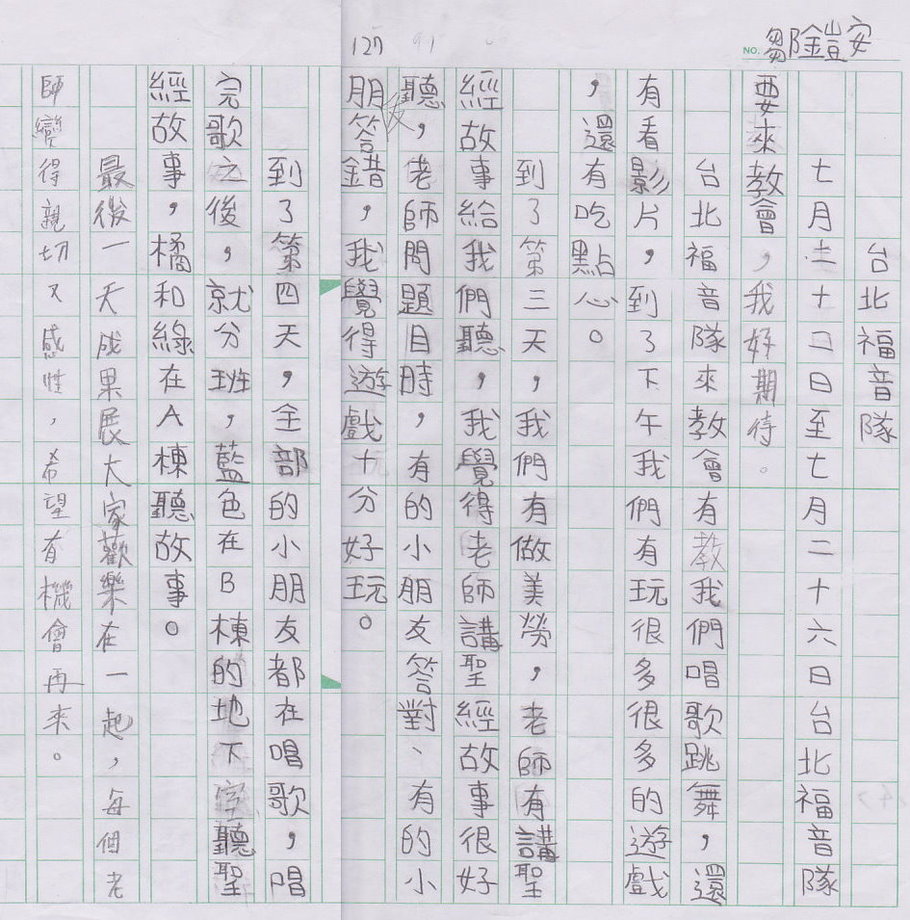 NO. 鄒鎧安
台北福音隊
七月二十二日至七月二十六日台北福音隊
要來教會，我好期待。
台北福音隊來教會有教我們唱歌跳舞，還
有看影片，到了下午我們有玩很多很多的遊戲
，還有吃點心。
到了第三天，我們有做美勞，老師有講聖
經故事給我們聽，我覺得老師講聖經故事很好
聽，老師問題目時，有的小朋友答對、有的小
朋答錯，我覺得遊戲十分好玩。
127
到了第四天，全部的小朋友都在唱歌，唱
完歌之後，就分班，藍色在B棟的地下室聽聖
經故事，橘和綠在A棟聽故事。
最後一天成果展大家歡樂在一起，每個老
師變得親切又感性，希望有機會再來。